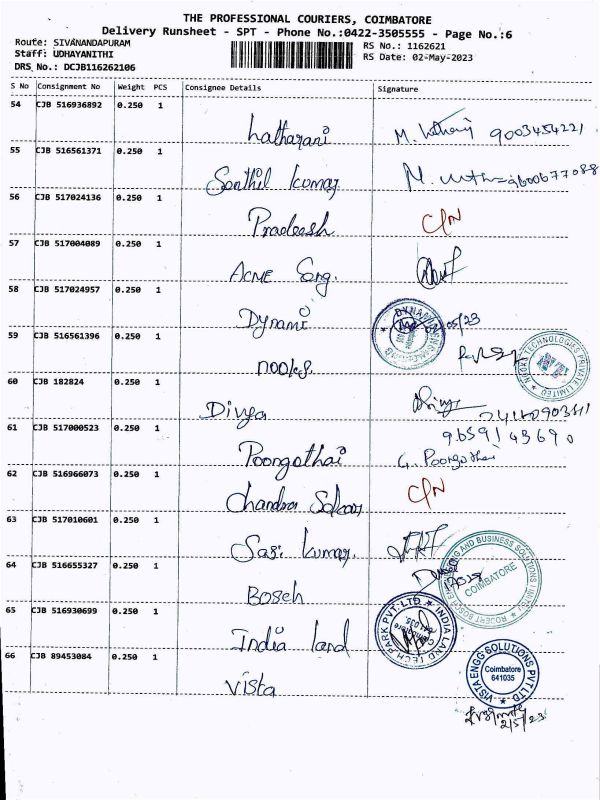 THE PROFESSIONAL COURIERS, COIMBATORE
Delivery Runsheet - SPT - Phone No.:0422-3505555 - Page No.:6
Route: SIVANANDAPURAM
Staff: UDHAYANITHI
DRS No.: DCJB116262106
RS No.: 1162621
RS Date: 02-May-2023
S No Consignment No Weight PCS Consignee Details Signature
54 CJB 516936892 0.250 1
Latharani M. 9003454221
55 CJB 516561371 0.250 1
Senthil kumar M. 9600677088
56 CJB 517024136 0.250 1
Pradeesh C/N
57 CJB 517004089 0.250 1
ACME Eng.
58 CJB 517024957 0.250 1
Dynami
59 CJB 516561396 0.250 1
nooks. NOOKX TECHNOLOGIES PRIVATE LIMITED
60 CJB 182824 0.250 1
Divya
61 CJB 517000523 0.250 1 9659143690
Poongothai G. Poongothai
62 CJB 516966073 0.250 1
Chandra C/N
63 CJB 517010601 0.250 1
Sasi kumar
64 CJB 516655327 0.250 1
Bosch ROBERT BOSCH AND BUSINESS SOLUTIONS COIMBATORE
65 CJB 516930699 0.250 1
India land INDIA LAND TECH PARK PVT. LTD
66 CJB 89453084 0.250 1
Vista VISTA ENGG SOLUTIONS PVT LTD
Coimbatore
641035
2/5/23